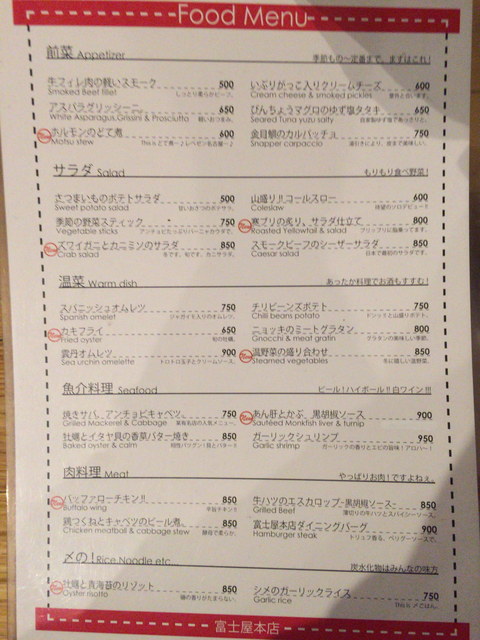 Food Menu
前菜 Appetizer 季節もの〜定番まで、まずはこれ!
牛フィレ肉の軽いスモーク 500
Smoked Beef fillet
いぶりがっこ入りクリームチーズ 600
Cream cheese & smoked pickles
アスパラグリッシーニ 650
White Asparagus Grissini & Prosciutto
びんちょうマグロのゆず塩タタキ 650
Seared Tuna yuzu salty
ホルモンのどて煮 600
Motsu stew
金目鯛のカルパッチョ 750
Snapper carpaccio
サラダ Salad もりもり食べ野菜!
さつまいものポテトサラダ 500
Sweet potato salad
山盛り!!コールスロー 600
Coleslaw
季節の野菜スティック 750
Vegetable sticks
寒ブリの炙り、サラダ仕立て 800
Roasted Yellowtail & salad
ズワイガニとカニミソのサラダ 850
Crab salad
スモークビーフのシーザーサラダ 850
Caesar salad
温菜 Warm dish あったか料理でお酒もすすむ!
スパニッシュオムレツ 750
Spanish omelet
チリビーンズポテト 750
Chilli beans potato
カキフライ 650
Fried oyster
ニョッキのミートグラタン 800
Gnocchi & meat gratin
雲丹オムレツ 900
Sea urchin omelette トロトロ玉子とクリームソース。
温野菜の盛り合わせ 850
Steamed vegetables
魚介料理 Seafood ビール!ハイボール!!白ワイン!!!
焼きサバ、アンチョビキャベツ。 750
Grilled Mackerel & Cabbage
あん肝とかぶ、黒胡椒ソース 900
Sautéed Monkfish liver & turnip
牡蠣とイタヤ貝の香菜バター焼き 850
Baked oyster & calm
ガーリックシュリンプ 950
Garlic shrimp
肉料理 Meat やっぱりお肉!ですよねぇ。
バッファローチキン!! 850
Buffalo wing
牛ハツのエスカロップ-黒胡椒ソース- 850
Grilled Beef
鶏つくねとキャベツのビール煮。 850
Chicken meatball & cabbage stew
富士屋本店ダイニングバーグ 900
Hamburger steak
〆の!Rice Noodle etc. 炭水化物はみんなの味方
牡蠣と青海苔のリゾット 850
Oyster risotto
シメのガーリックライス 750
Garlic rice
富士屋本店